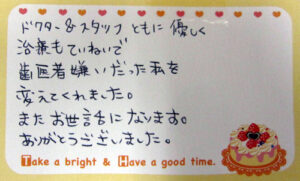 ドクター&スタッフ ともに 優しく
治療もていねいで
歯医者嫌いだった私を
変えてくれました。
またお世話になります。
ありがとうございました。
Take a bright & Have a good time.